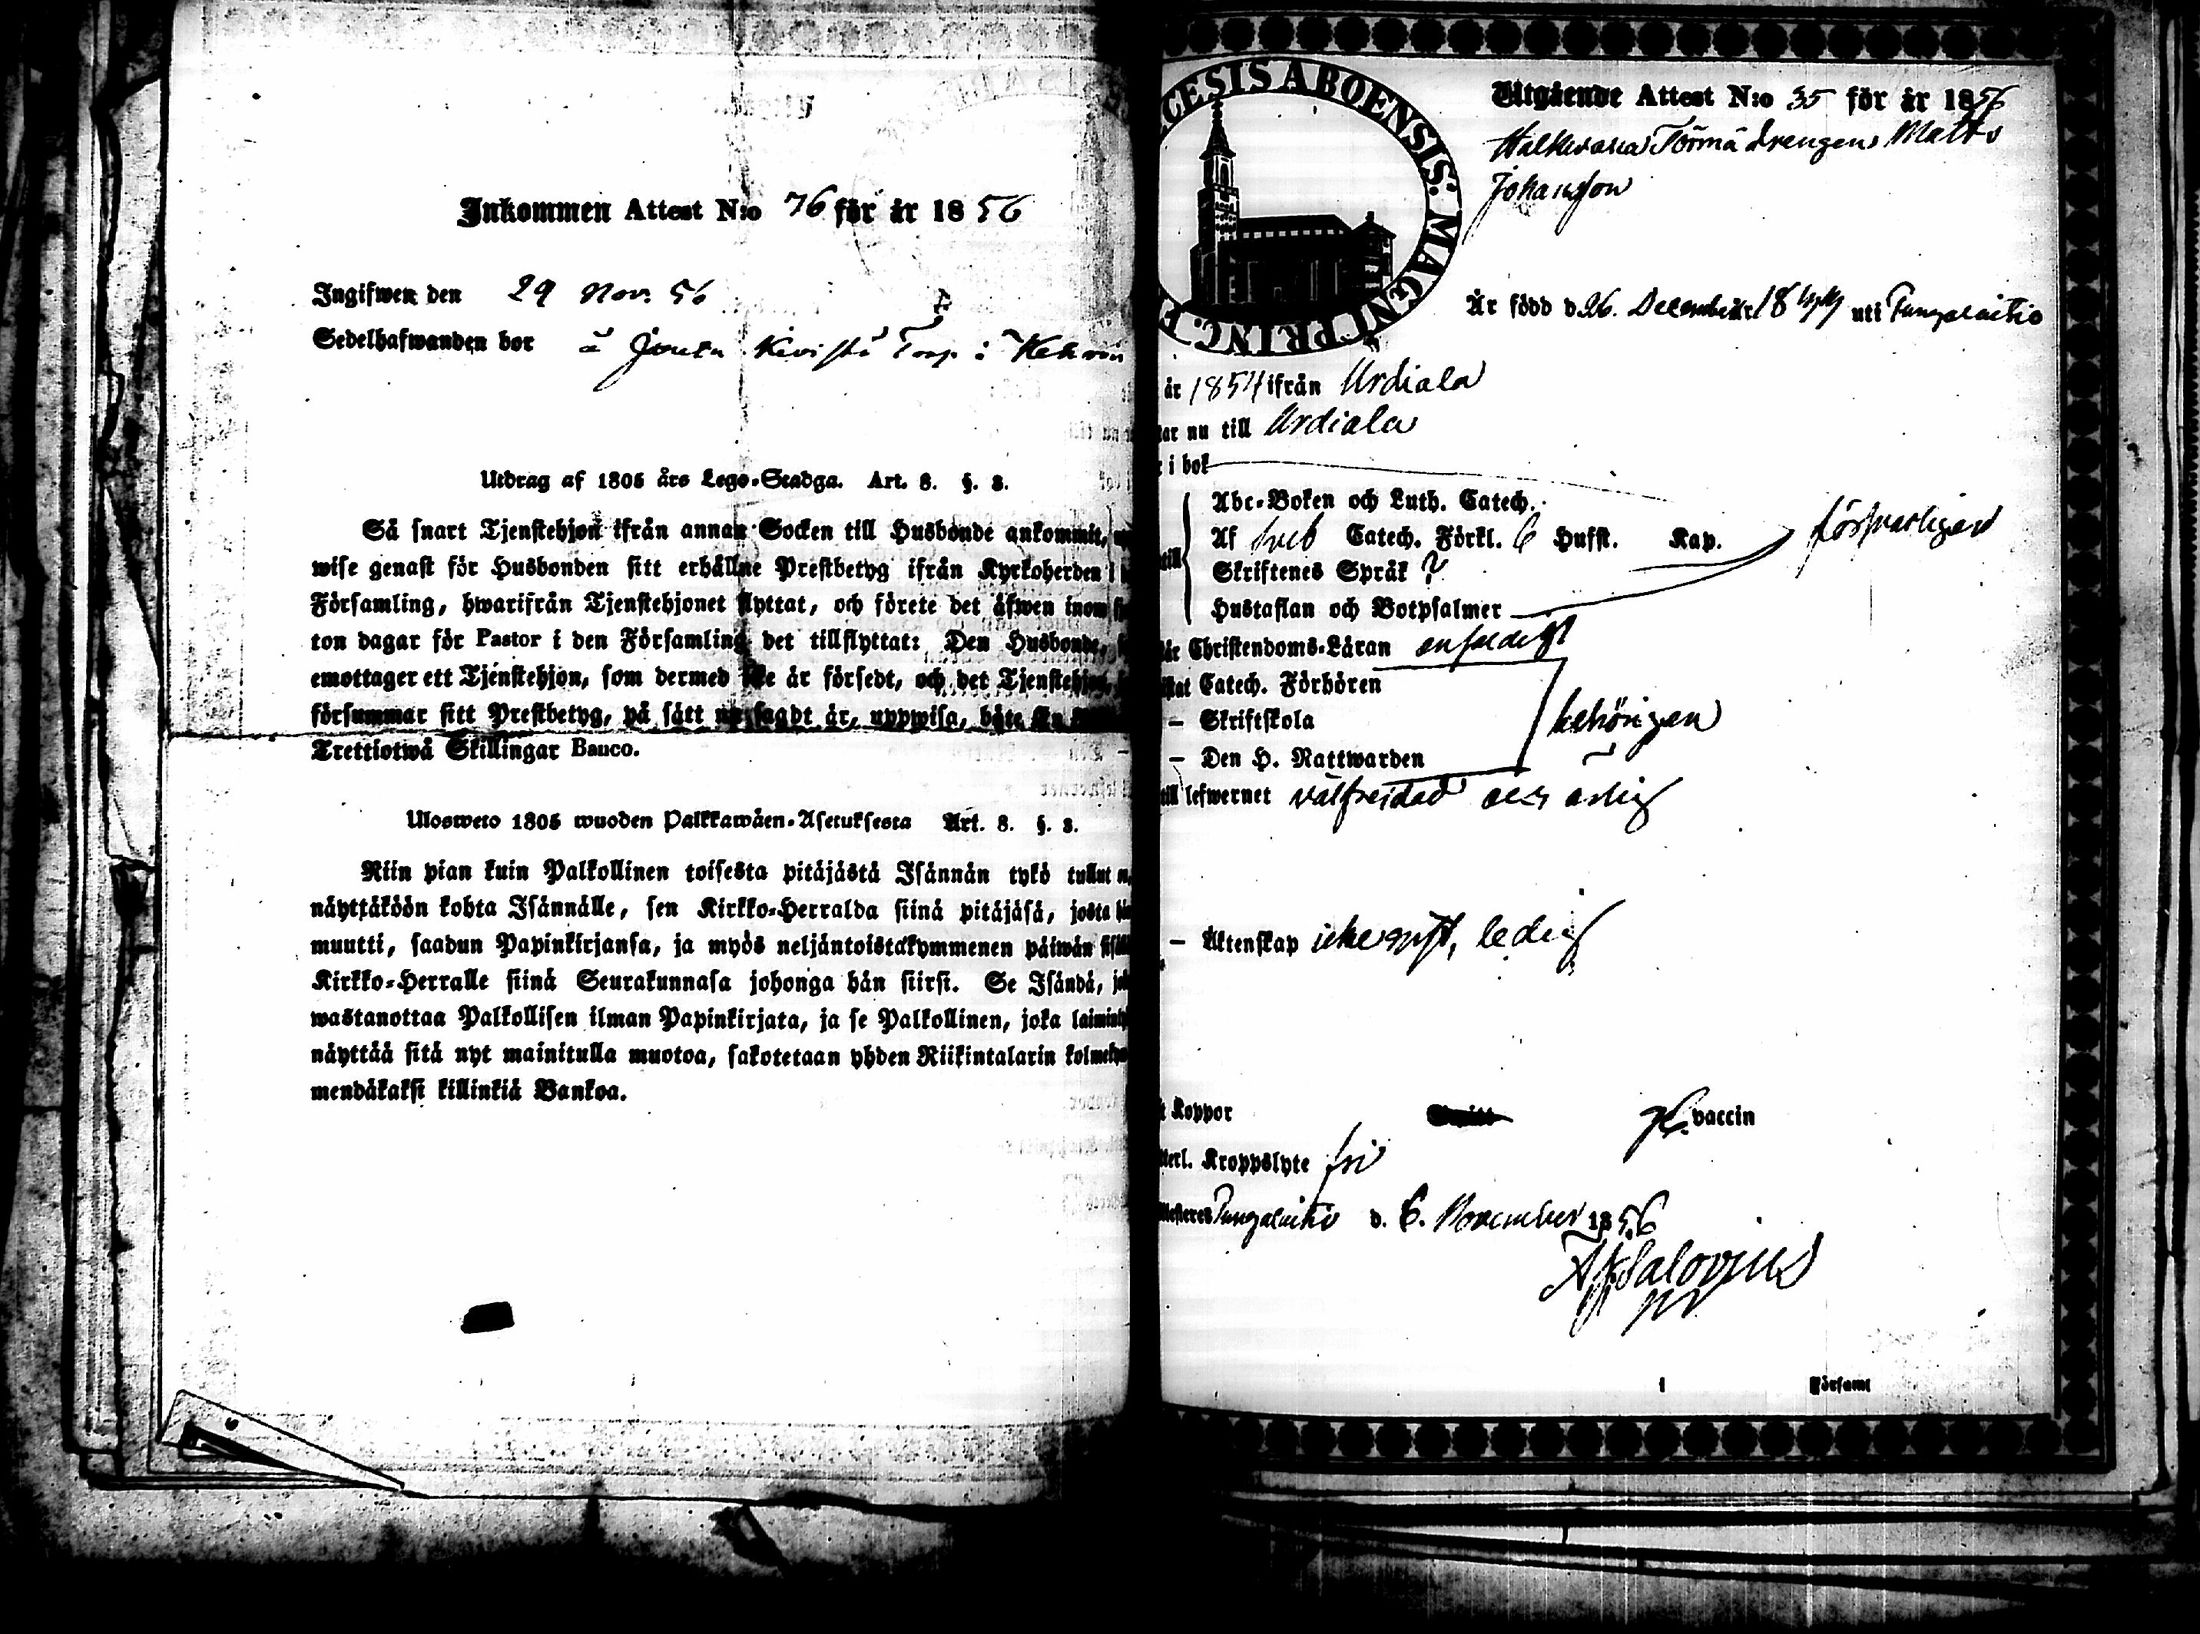 Inkommen Attest N:o 76 för år 1856
Ingifwen den 29 Nov. 56
Sedelhafwanden bor å Jouta Kivistö Torp i
Utdrag af 1805 års Lego-Stadga. Art. 8. §. 3.
Så snart Tjenstehjon ifrån annan Socken till Husbonde ankommit,
wise genast för Husbonden sitt erhållne Prestbetyg ifrån Kyrkoherden i
Församling, hwarifrån Tjenstehjonet flyttat, och förete det äfwen inom
ton dagar för Pastor i den Församling det tillflyttat: Den Husbonde,
emottager ett Tjenstehjon, som dermed icke är försedt, och det Tjenstehjon,
försummar sitt Prestbetyg, på sätt nu sagdt är, uppwisa, böte
Trettiotwå Skillingar Banco.
Ulosweto 1805 wuoden Palkkawäen-Asetuksesta Art. 8. §. 3.
Niin pian kuin Palkollinen toisesta pitäjästä Isännän tykö tullut
näyttäköön kohta Isännälle, sen Kirkko-Herralda siinä pitäjäsä, josta
muutti, saadun Papinkirjansa, ja myös neljäntoistakymmenen päiwän
Kirkko-Herralle siinä Seurakunnasa johonga hän siirsi. Se Isändä,
wastanottaa Palkollisen ilman Papinkirjata, ja se Palkollinen, joka
näyttää sitä nyt mainitulla muotoa, sakotetaan yhden Riikintalarin
mendäkaksi killinkiä Bankoa.
CESIS ABOENSIS. MAGNI PRINC. F
Utgående Attest N:o 35 för år 1856
Törmä drengen Matts
Johansson
Är född d. 26. December 1844 uti Pungalaitio
år 1854 ifrån Urdiala
nu till Urdiala
i bok
Abc-Boken och Luth. Catech.
Af Sveb Catech. Förkl. 6 Hufst. Kap. försvarligen
Skriftenes Språk ?
Hustaflan och Botpsalmer
Christendoms-Läran enfaldigt
Catech. Förhören
— Skriftskola behörigen
— Den H. Nattwarden
till lefwernet välfrejdad och ärlig
— Äktenskap icke gift, ledig
Koppor vaccin
Kroppslyte fri
Pungalaitio d. 6. November 1856
Salovius
1 Församl